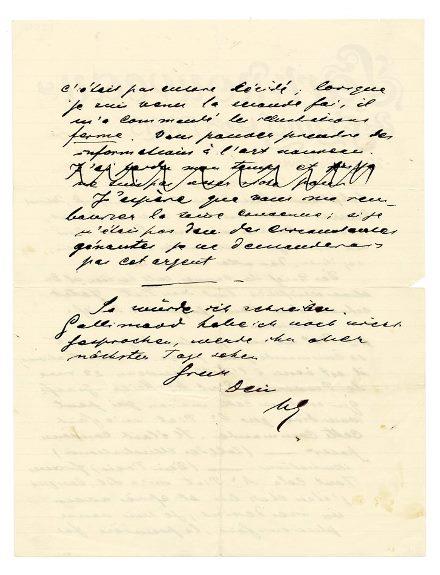 c'était pas encore décidé, lorsque
je suis venu la seconde foi, il
m'a commandé les illustrations
ferme. Vous pouvez prendre des
informations à l'art nouveau.
J'ai perdu mon temps et
me suis pas
J'espère que vous me rem-
bourser la somme convenue; si je
n'était pas dans des circonstances
gênantes je ne demanderais
pas cet argent
So würde ich schreiben.
Gallimard habe ich noch nicht
gesprochen, werde ihn aber
nächster Tage sehen
Gruss
Dein